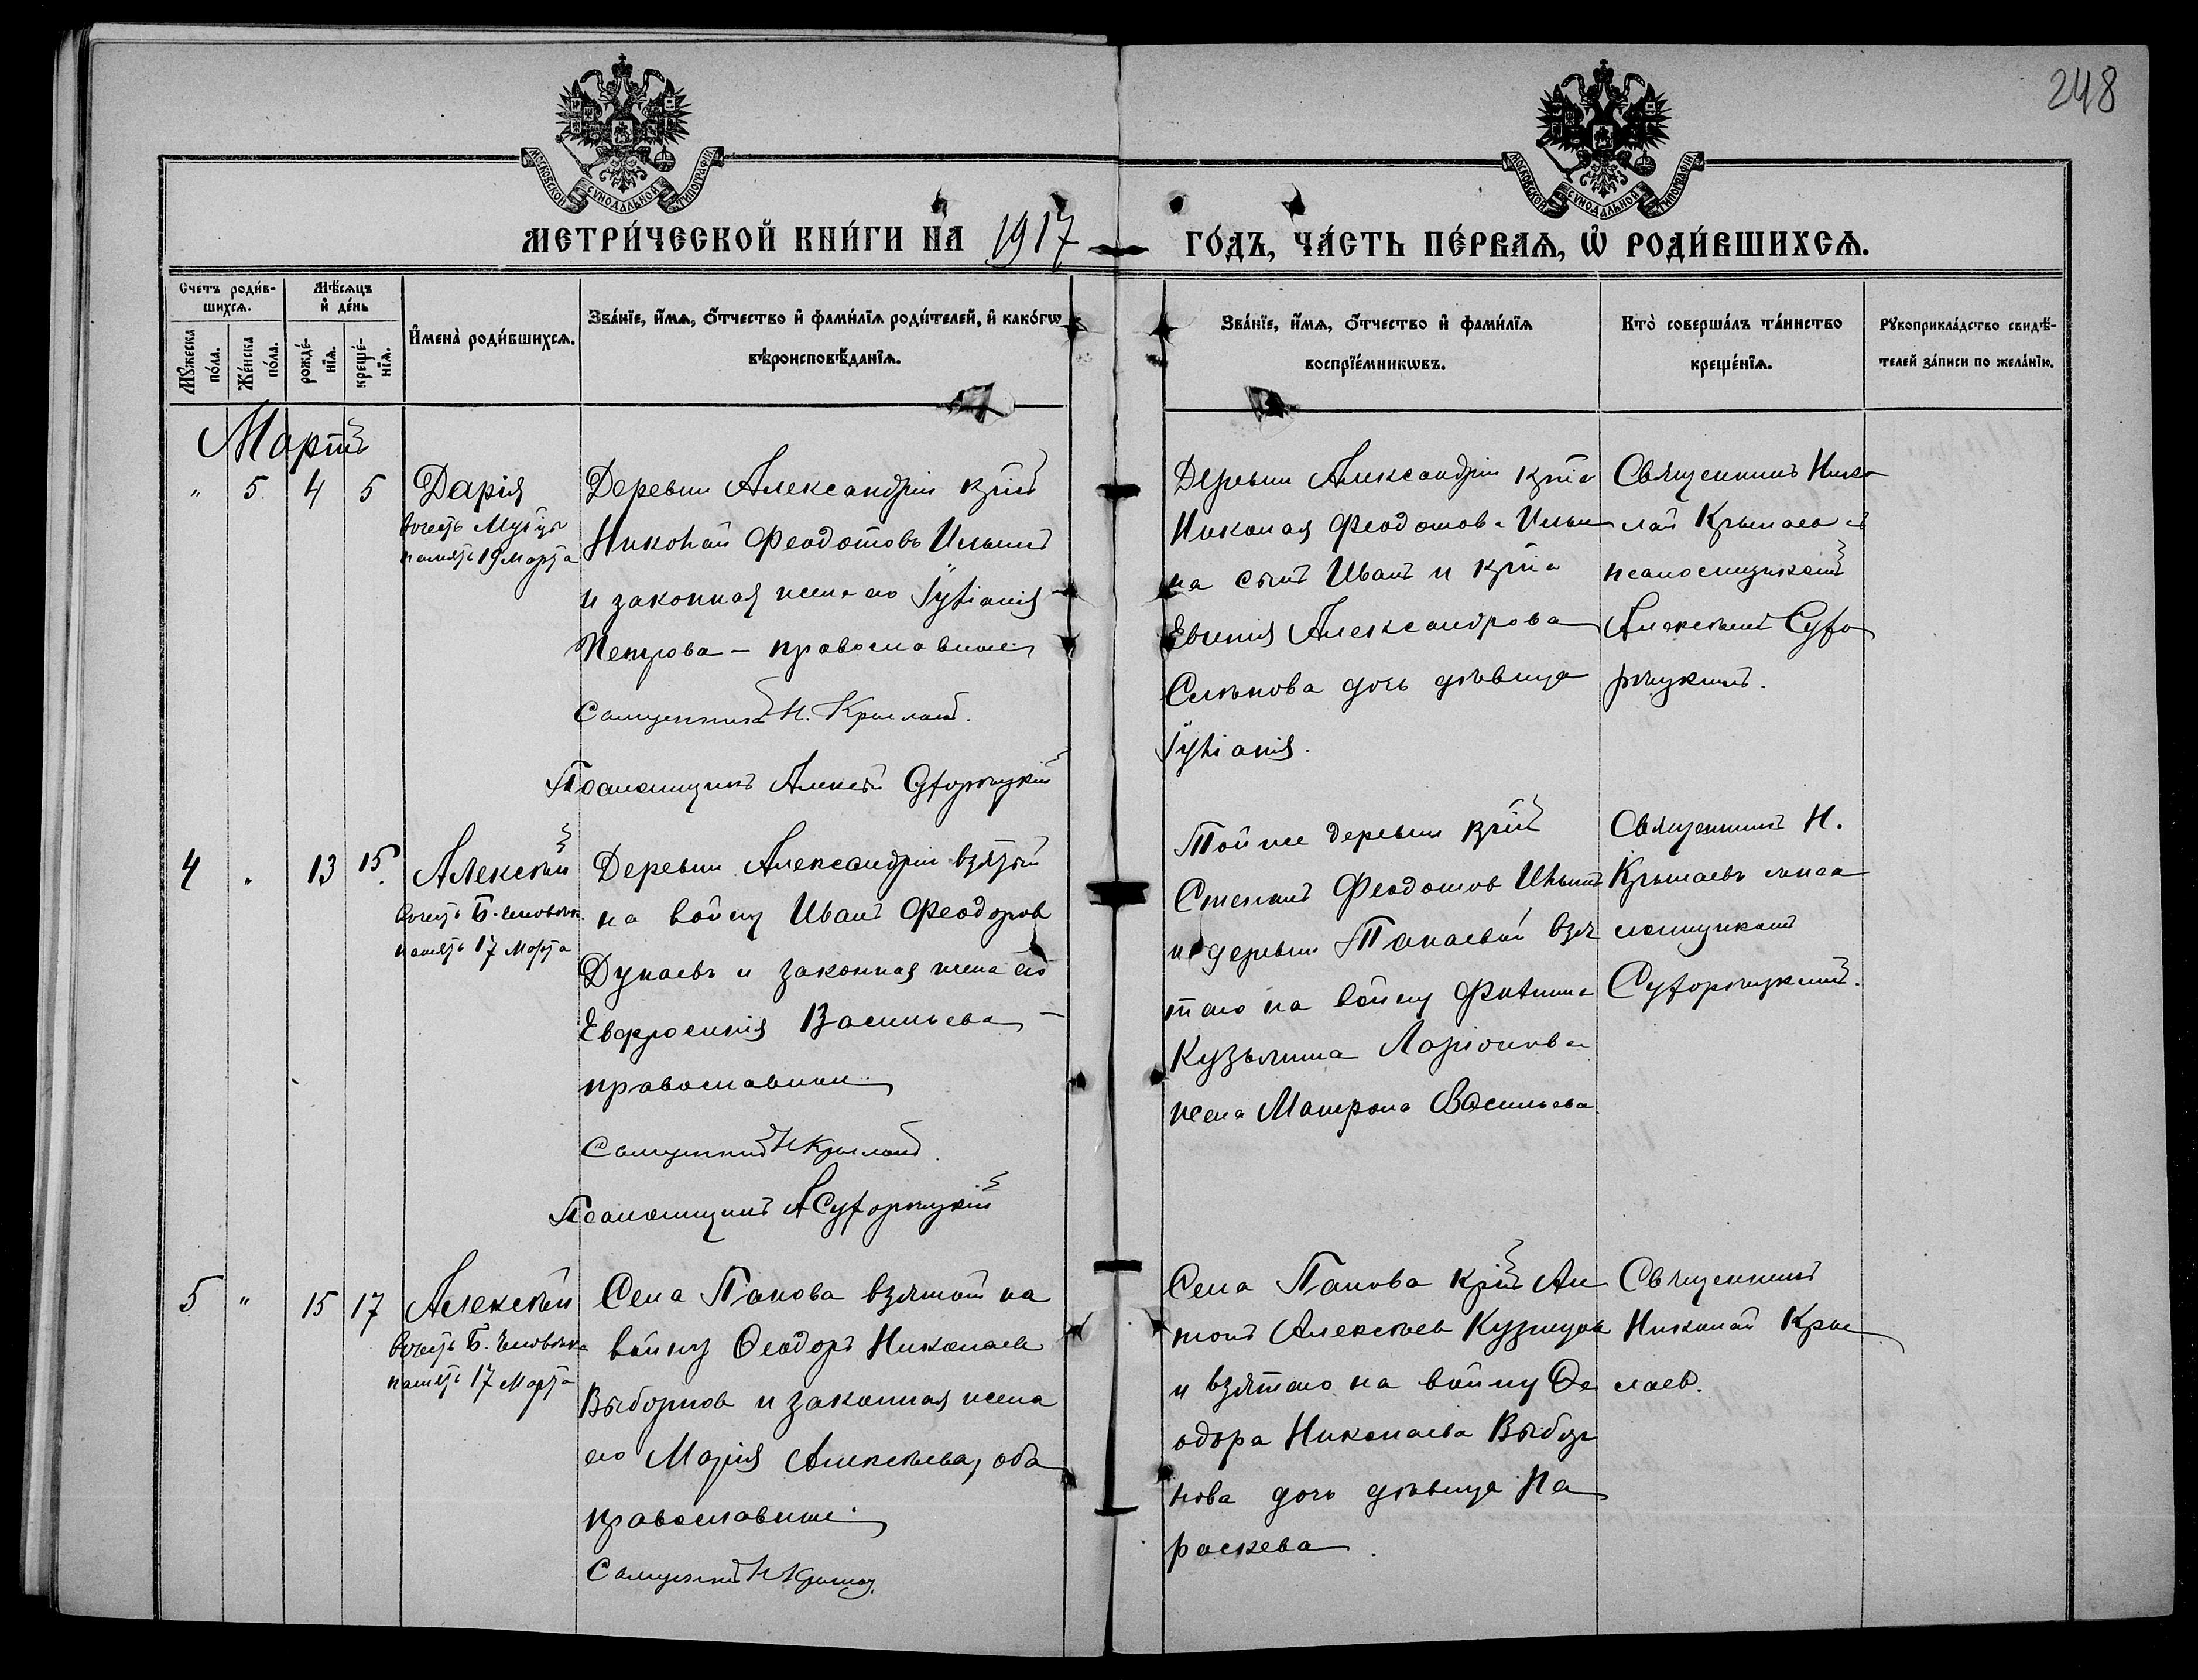 248
МОСКОВСКОЙ СѴНОДАЛЬНОЙ ТИПОГРАФІИ
МОСКОВСКОЙ СѴНОДАЛЬНОЙ ТИПОГРАФІИ
МЕТРИ́ЧЕСКОЙ КНИ́ГИ НА 1917 ГО́ДЪ, ЧА́СТЬ ПЕ́РВАѦ, Ѽ РОДИ́ВШИХСѦ.
Счетъ роди́в-
шихсѧ.
Мꙋжеска
по́ла.
Же́нска
по́ла.
Мѣ́сѧцъ
и҆ де́нь
рожде́-
нїѧ.
креще́-
нїѧ.
И҆мена̀ роди́вшихсѧ.
Зва́нїе, и҆́мѧ, ѻ҆́тчество и҆ фами́лїѧ роди́телей, и҆ како́гѡ
вѣроисповѣ́данїѧ.
Зва́нїе, и҆́мѧ, ѻ҆́тчество и҆ фами́лїѧ
воспрїе́мникѡвъ.
Кто̀ соверша́лъ та́инство
креще́нїѧ.
Рꙋкоприкла́дство свидѣ́-
телей за́писи по жела́нїю.
Мартъ
" 5 4 5
Дарія
вчесть Муч-цы
память 19 Марта
Деревни Александріи кр-нъ
Николай Феодотовъ Ильинъ
и законная жена его Іуліанія
Петрова – православные
Священникъ Н. Крылаевъ.
Псаломщикъ Алексѣй Суходольскій
Деревни Александріи кр-на
Николая Феодотова Ильи
на сынъ Иванъ и кр-на
Евгенія Александрова
дочь дѣвица
Іуліанія.
Священникъ Нико
лай Крылаевъ съ
псаломщикомъ
Алексѣемъ
4 " 13 15.
Алексѣй
вчесть Б. человѣка
память 17 Марта
Деревни Александріи взятый
на войну Иванъ Феодоров
Дунаевъ и законная жена его
Евфросинія Васильева –
православные
Священникъ Н Крылаевъ.
Псаломщикъ А
Той же деревни кр-нъ
Степанъ Феодотов Ильинъ
и деревни взя
таго на войну Филиппа
Кузьмина Ларіонова
жена Матрона Васильева
Священникъ Н.
Крылаевъ с пса
ломщикомъ
5 " 15 17
Алексѣй
вчесть Б. человѣка
память 17 Марта
Села Панова взятый на
войну Ѳеодоръ Николаев
Выборнов и законная жена
его Марія Алексѣева, оба
православные
Священникъ Н Крылаев.
Села Панова кр-нъ Ан
тонъ Алексѣев Кузнецов
и взятаго на войну Ѳе
одора Николаева Выбор
нова дочь дѣвица Па
раскева.
Священникъ
Николай Кры
лаев.